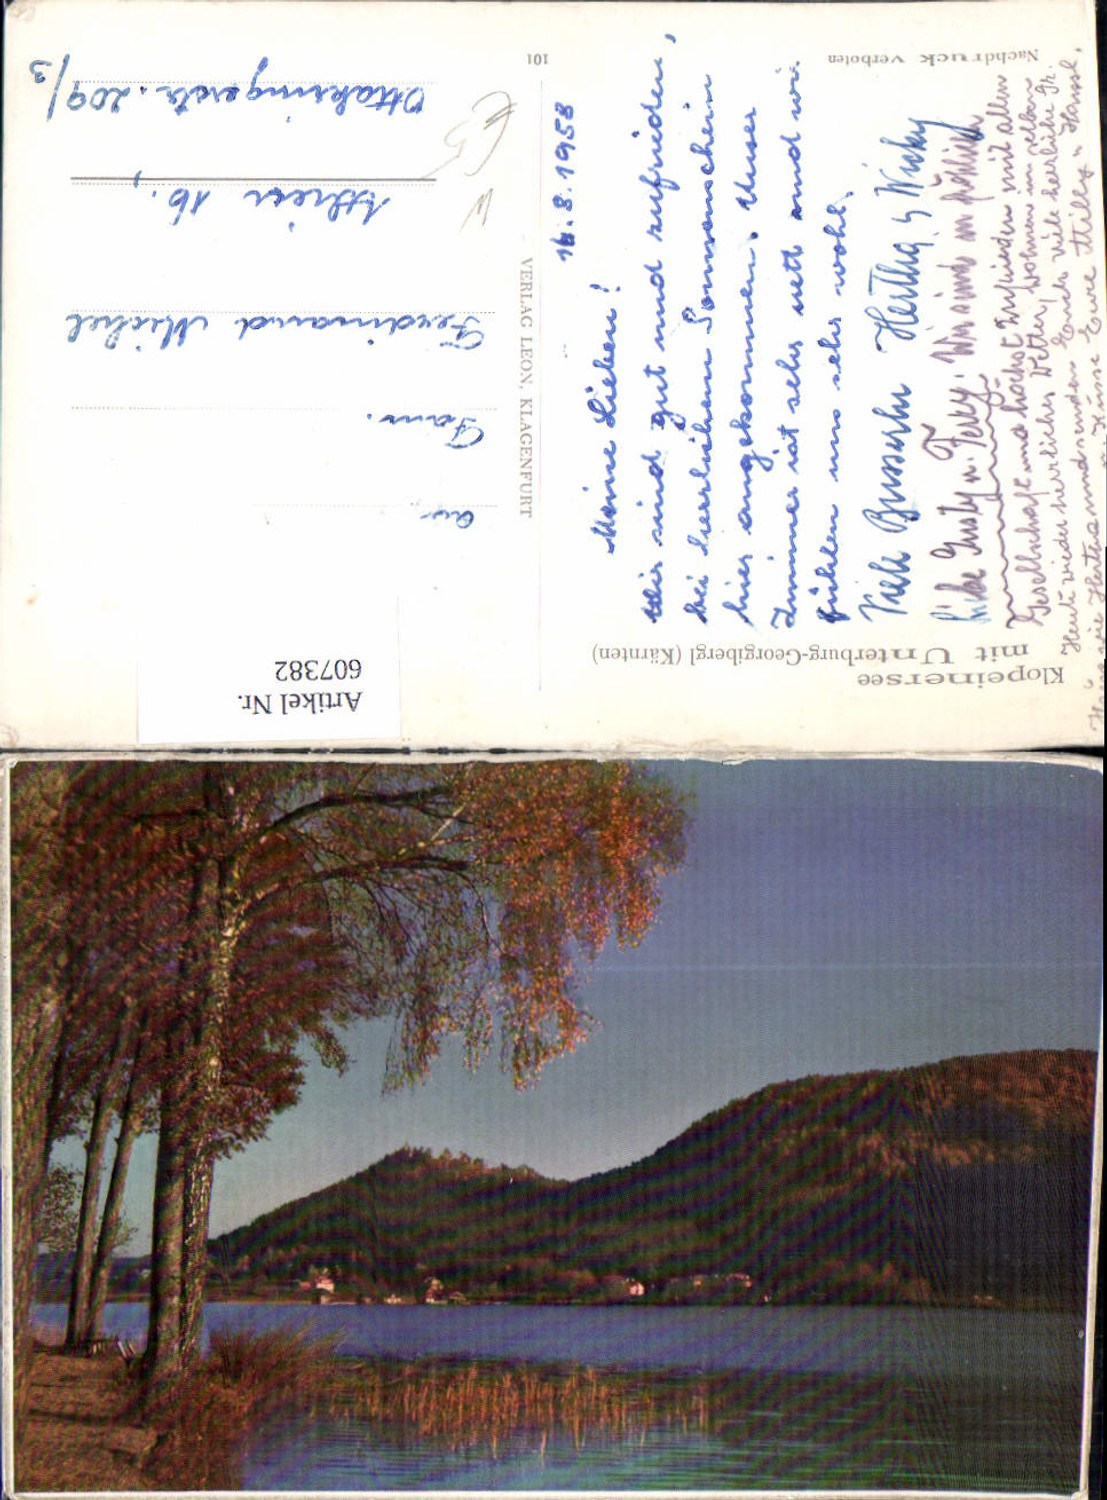 Klopeinersee
mit Unterburg-Georgibergl (Kärnten)
16.8.1958
Meine Lieben!
Wir sind gut und zufrieden,
bei herrlichem Sonnenschein
hier angekommen. Unser
Zimmer ist sehr nett und wir
fühlen uns sehr wohl.
Viele Busserln Hertha u Wicky
Liebe Gusty u. Ferry, Wir sind in fröhlich
Gesellschaft und höchst zufrieden mit allem
Heute wieder herrliches Wetter, wohnen im selben
und senden Euch viele herzliche Gr.
Hause wie Hertha u Küsse Eure Milly u Hansl.
Nachdruck verboten
VERLAG LEON, KLAGENFURT
101
An
Fam.
Ferdinand Michel
Wien 16.,
Ottakringerstr. 209/3
€5
Artikel Nr.
607382